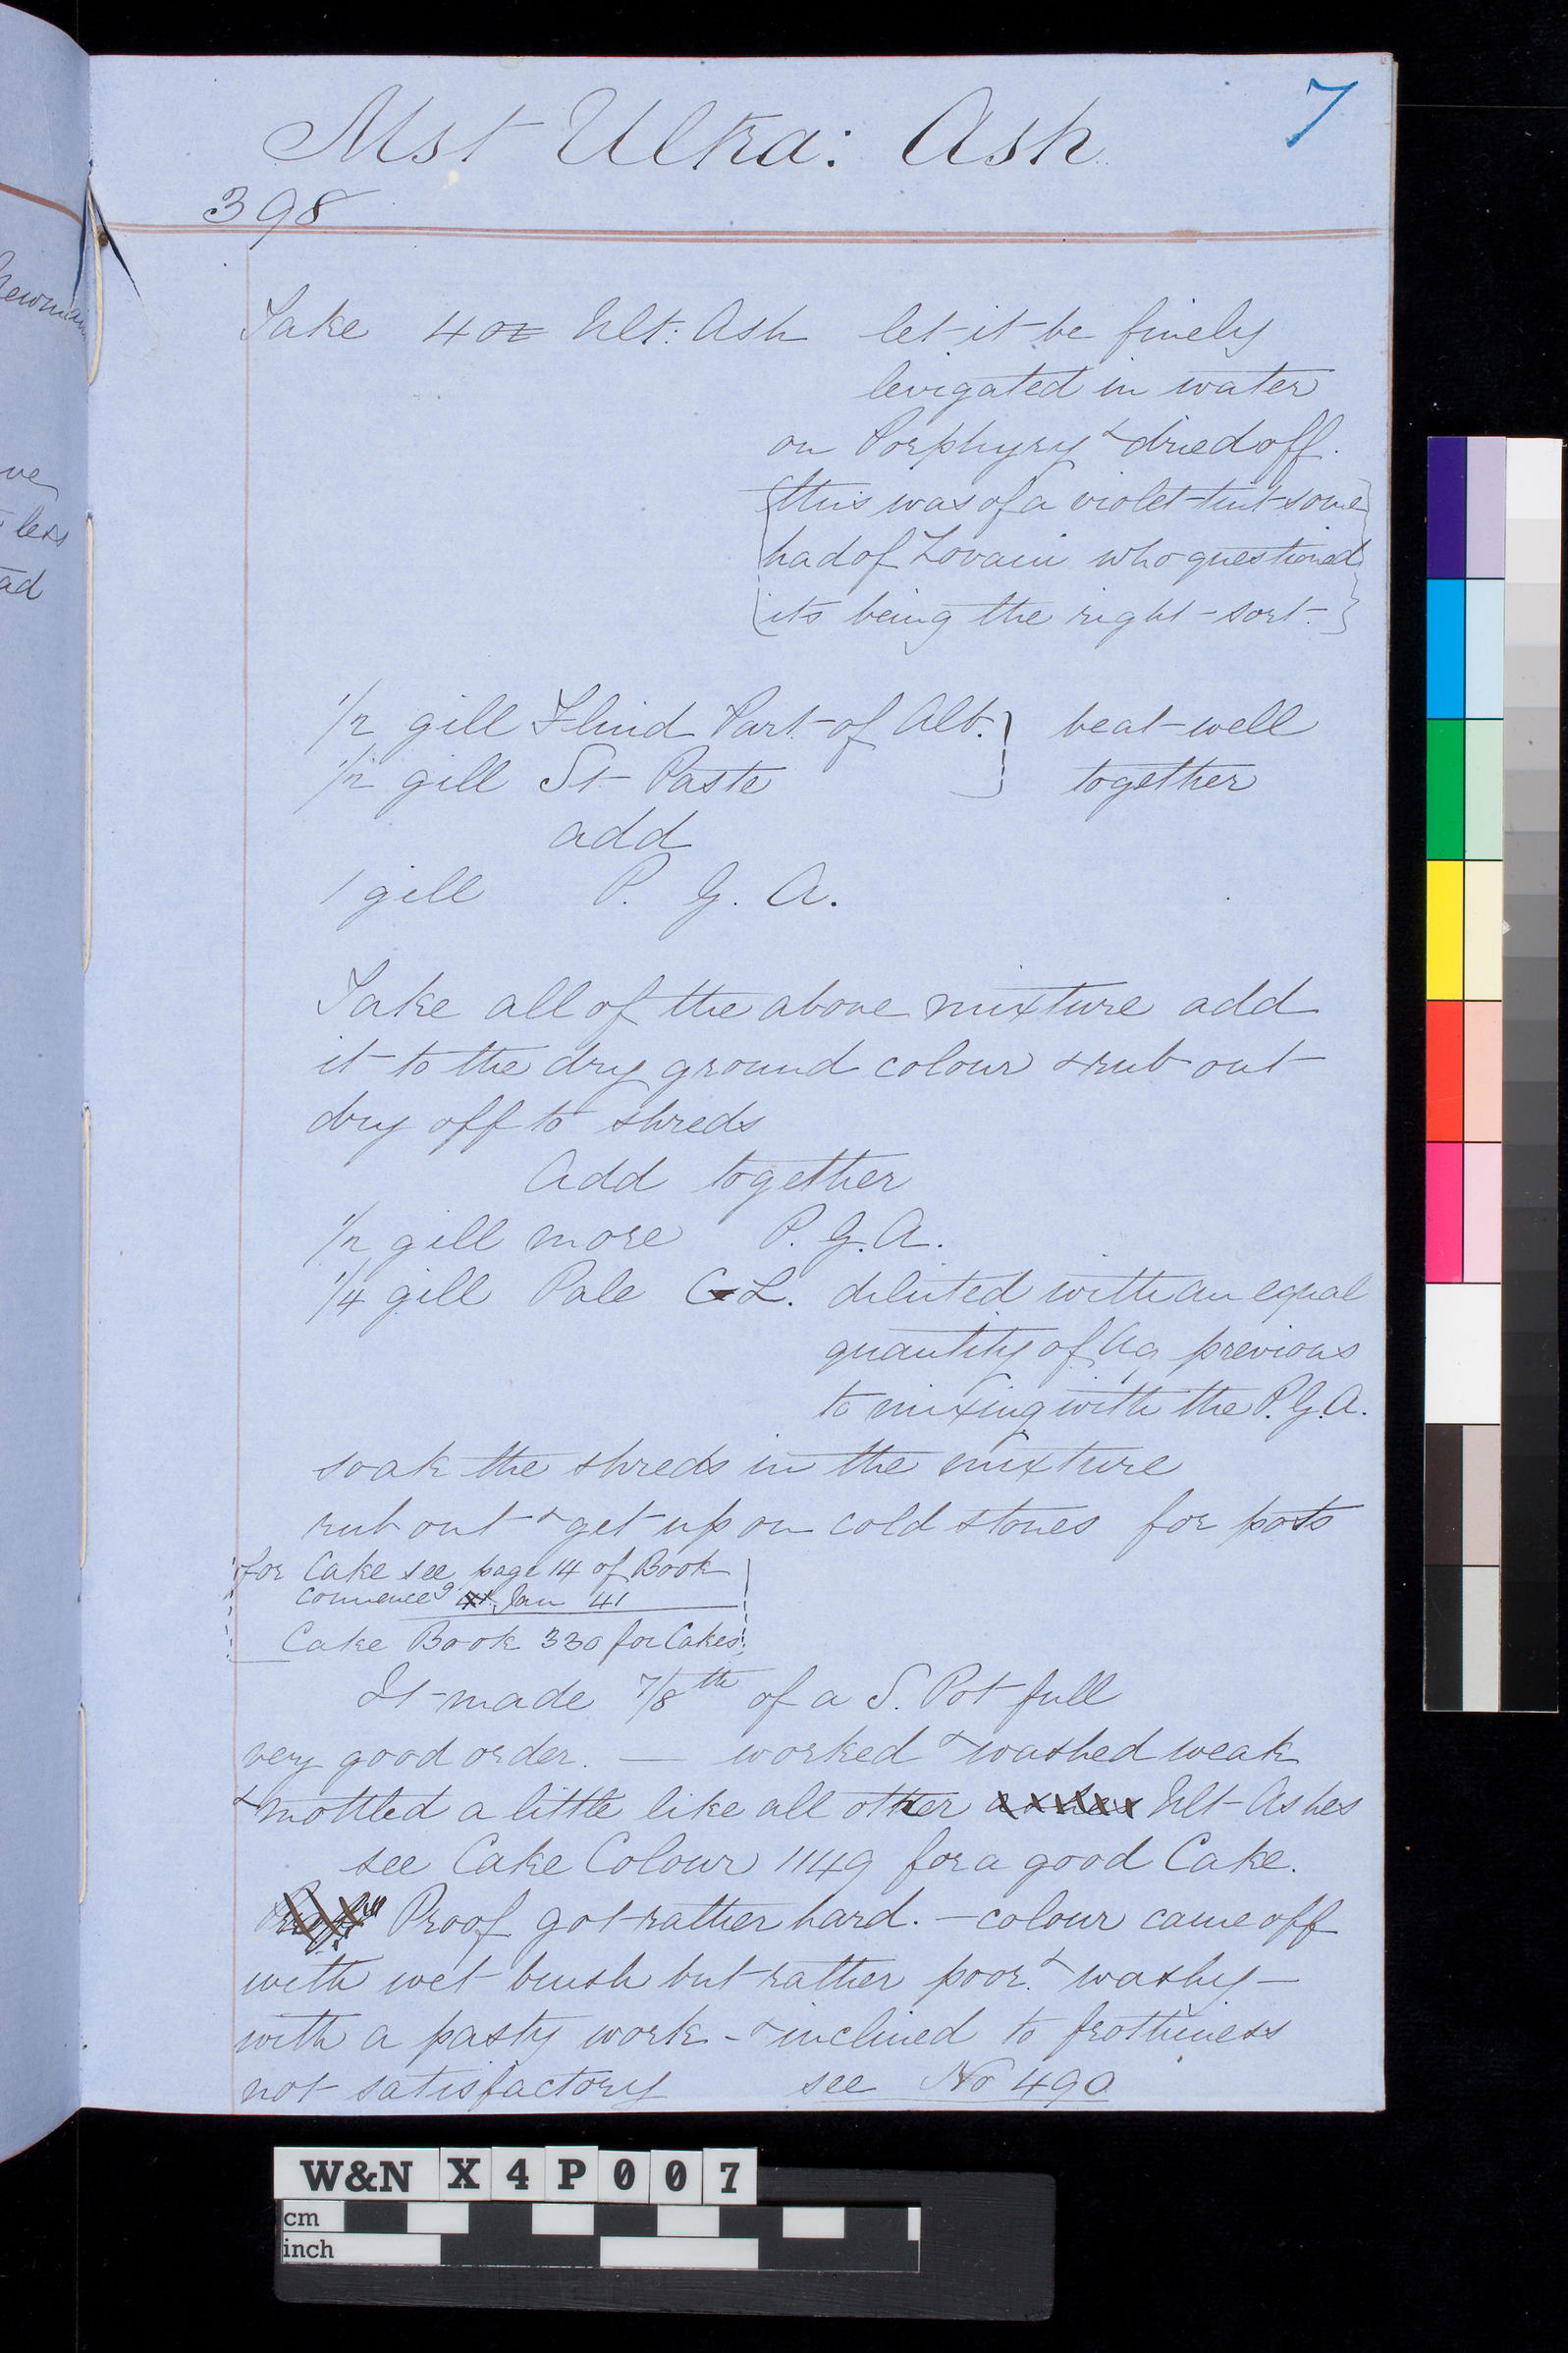 7
Mst Ultra: Ash
398
Take 4 oz Ult: Ash let it be finely
levigated in water
on Porphyry & dried off.
{this was of a violet tint some}
{had of Lovain who questioned}
{its being the right sort.}
1/2 gill Fluid Part of Alb. } beat well
1/2 gill St Paste } together
add
1 gill P. G. A.
Take all of the above mixture add
it to the dry ground colour & rub out
dry off to shreds
Add together
1/2 gill more P. G. A.
1/4 gill Pale G L. diluted with an equal
quantity of Aq previous
to mixing with the P. G. A.
soak the shreds in the mixture
rub out & get up on cold stones for pots
for Cake see page 14 of Book
commenceg Jan 41
Cake Book 330 for Cakes
It made 7/8th of a S. Pot full
very good order. — worked & washed weak
& mottled a little like all other Ult Ashes
see Cake Colour 1149 for a good Cake.
Proof got rather hard. — colour came off
with wet brush but rather poor & washy —
with a pasty work - & inclined to frothiness
not satisfactory see No 490
ewman
ve
less
ad
W&N X4P007
cm
inch